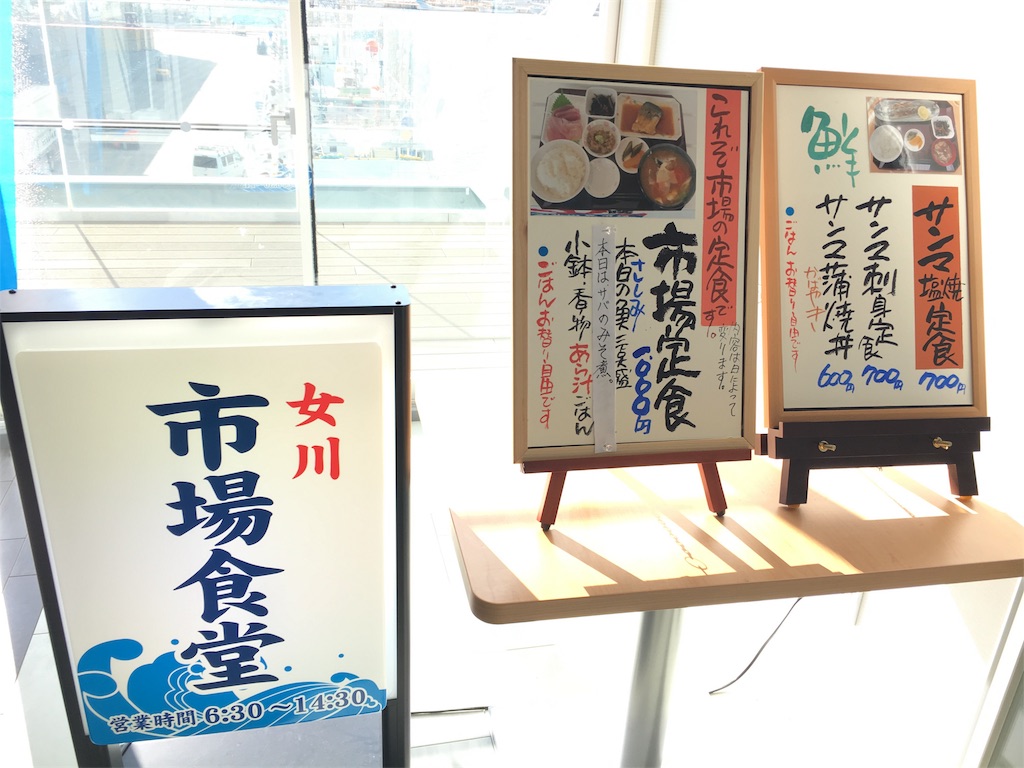 女川
市場食堂
営業時間 6:30〜14:30
これぞ市場の定食です。
内容は日によって
変わります。
市場定食
1000円
さしみ
本日の魚三点盛
本日はサバのみそ煮。
小鉢・香物 あら汁 ごはん
●ごはんお替り自由です
鮮
サンマ塩焼定食
700円
サンマ刺身定食
700円
サンマ蒲焼丼
かばやき
600円
●ごはんお替り自由です